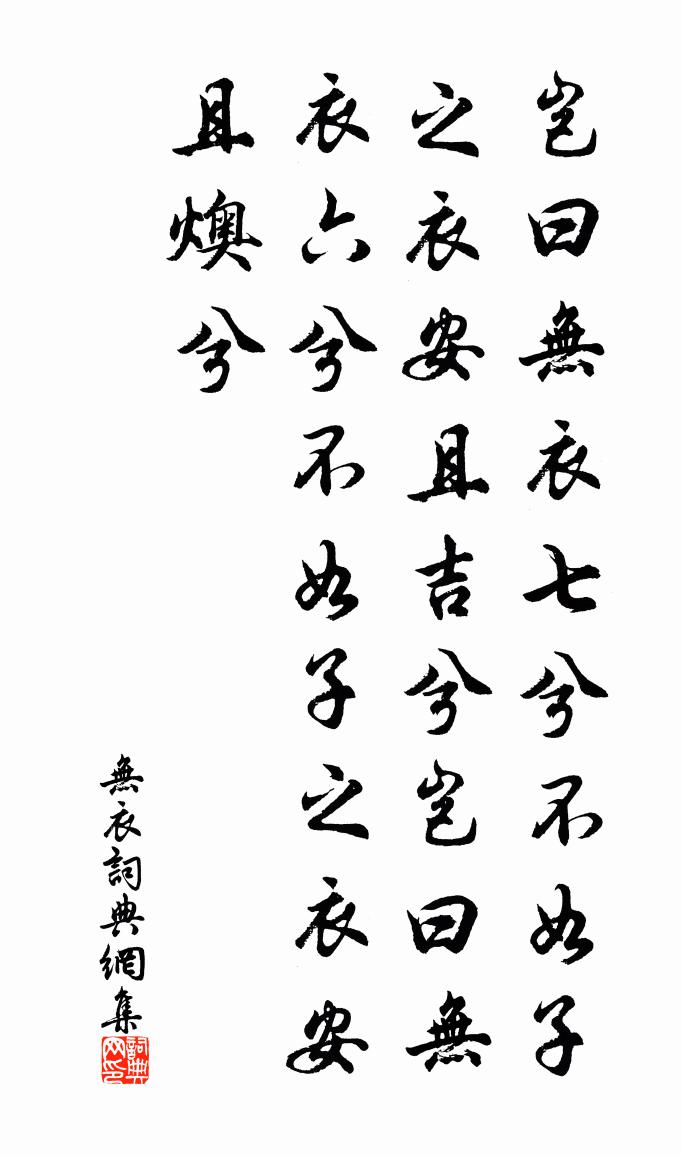 豈曰無衣七兮不如子
之衣安且吉兮豈曰無
衣六兮不如子之衣安
且燠兮
無衣詞典網集
詞典
网印